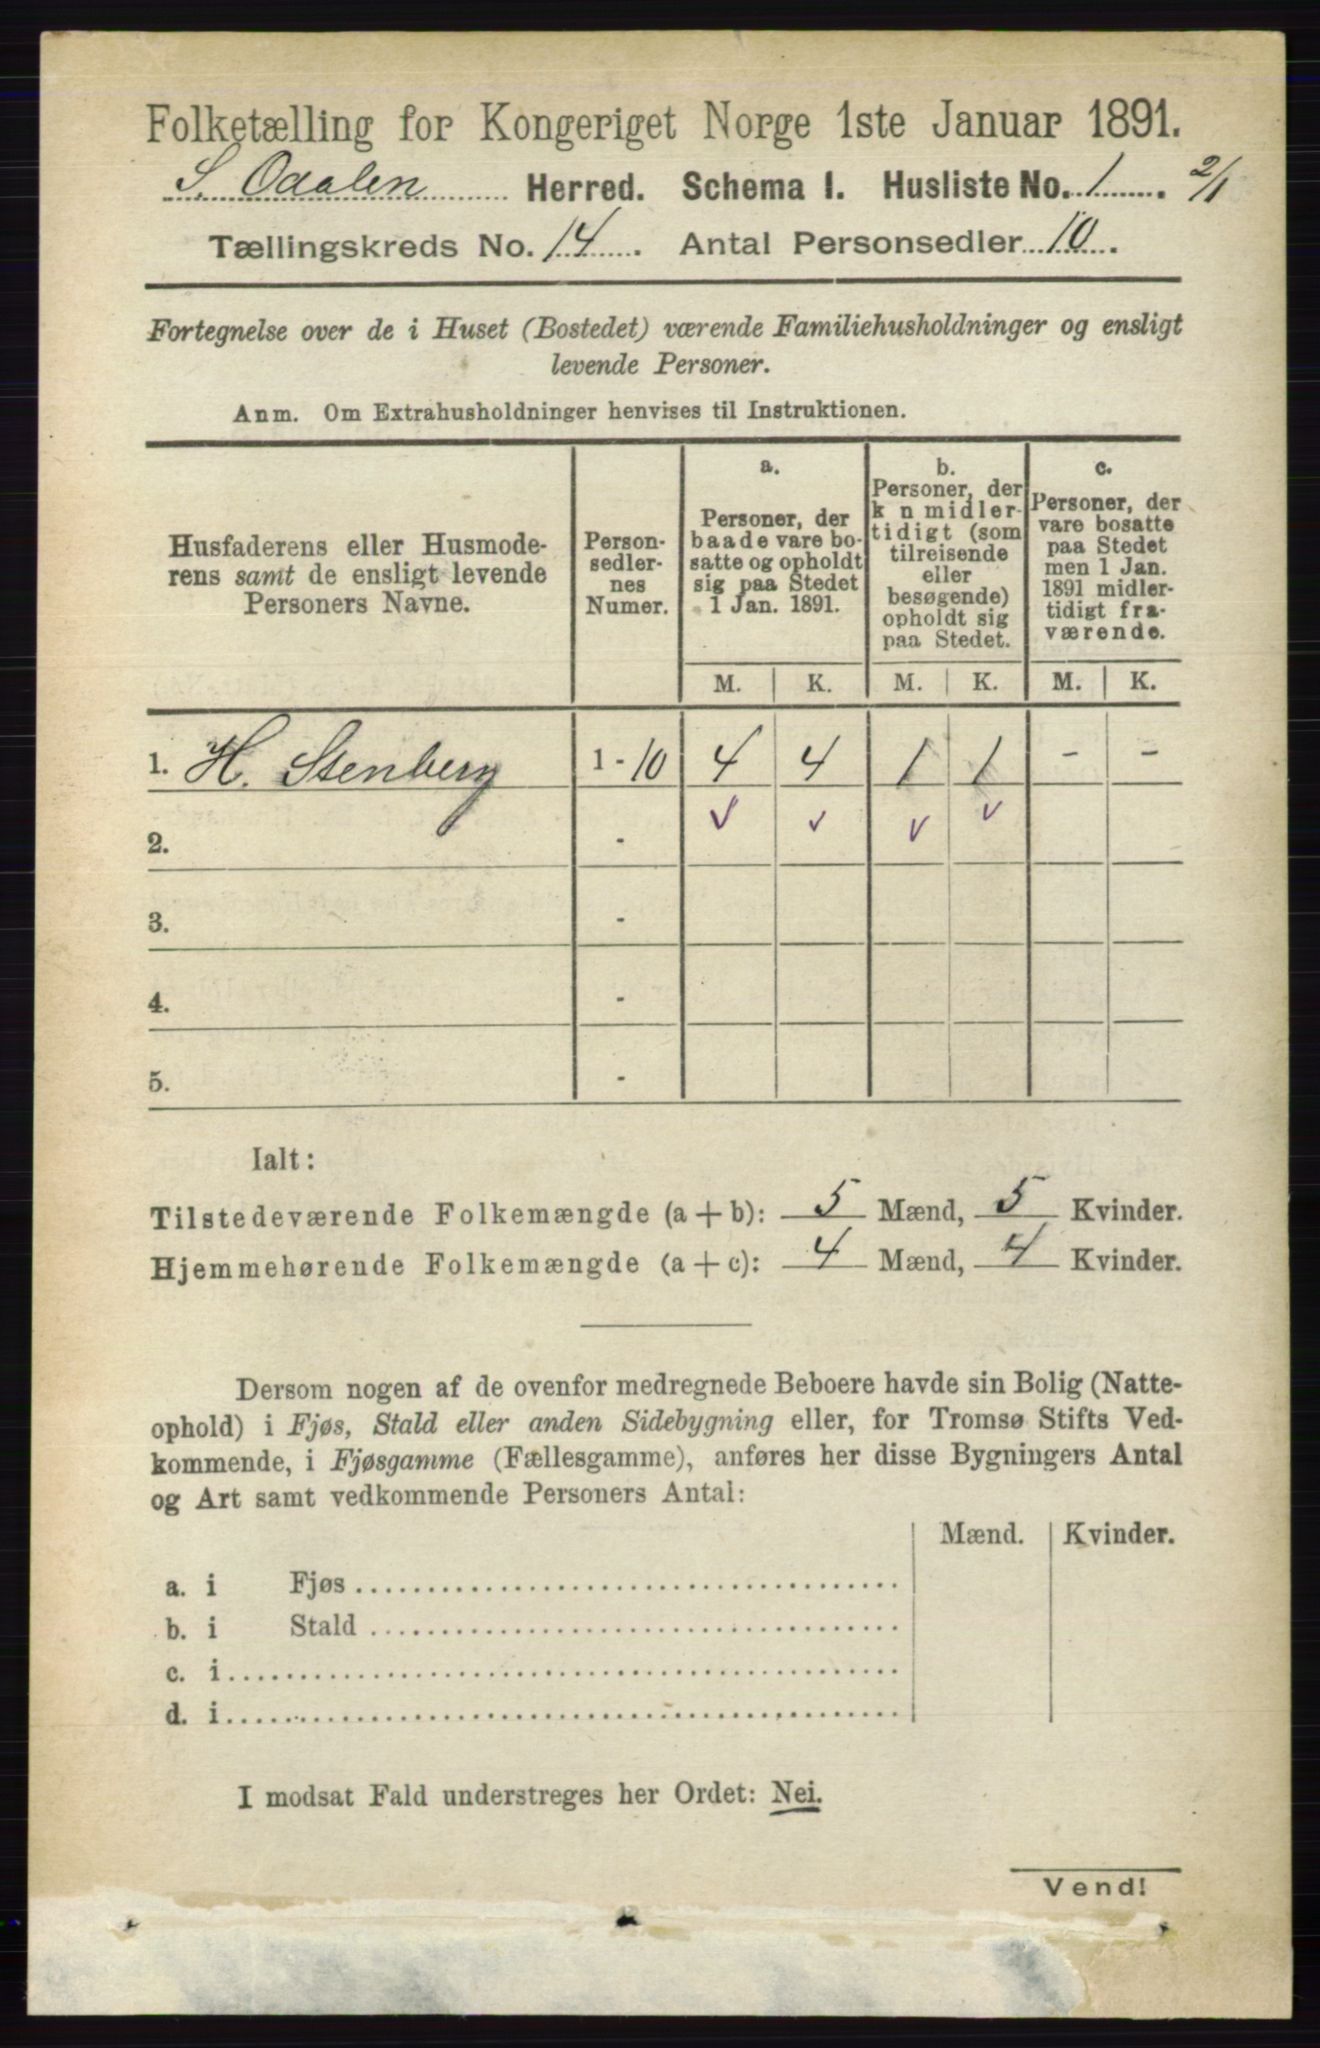 Folketælling for Kongeriget Norge 1ste Januar 1891.
S. Odalen Herred. Schema I. Husliste No. 1. 2/1
Tællingskreds No. 14. Antal Personsedler 10.
Fortegnelse over de i Huset (Bostedet) værende Familiehusholdninger og ensligt
levende Personer.
Anm. Om Extrahusholdninger henvises til Instruktionen.
Husfaderens eller Husmode-
rens samt de ensligt levende
Personers Navne.
Person-
sedler-
nes
Numer.
a.
Personer, der
baade vare bo-
satte og opholdt
sig paa Stedet
1 Jan. 1891.
b.
Personer, der
k n midler-
tidigt (som
tilreisende
eller
besøgende)
opholdt sig
paa Stedet.
c.
Personer, der
vare bosatte
paa Stedet
men 1 Jan.
1891 midler-
tidigt fra-
værende.
M. K. M. K. M. K.
1. H. Stenberg 1 - 10 4 4 1 1 - -
2. - ✓ ✓ ✓ ✓
3. -
4. -
5. -
Ialt:
Tilstedeværende Folkemængde (a + b): 5 Mænd, 5 Kvinder.
Hjemmehørende Folkemængde (a + c): 4 Mænd, 4 Kvinder.
Dersom nogen af de ovenfor medregnede Beboere havde sin Bolig (Natte-
ophold) i Fjøs, Stald eller anden Sidebygning eller, for Tromsø Stifts Ved-
kommende, i Fjøsgamme (Fællesgamme), anføres her disse Bygningers Antal
og Art samt vedkommende Personers Antal:
Mænd. Kvinder.
a. i Fjøs
b. i Stald
c. i
d. i
I modsat Fald understreges her Ordet: Nei.
Vend!